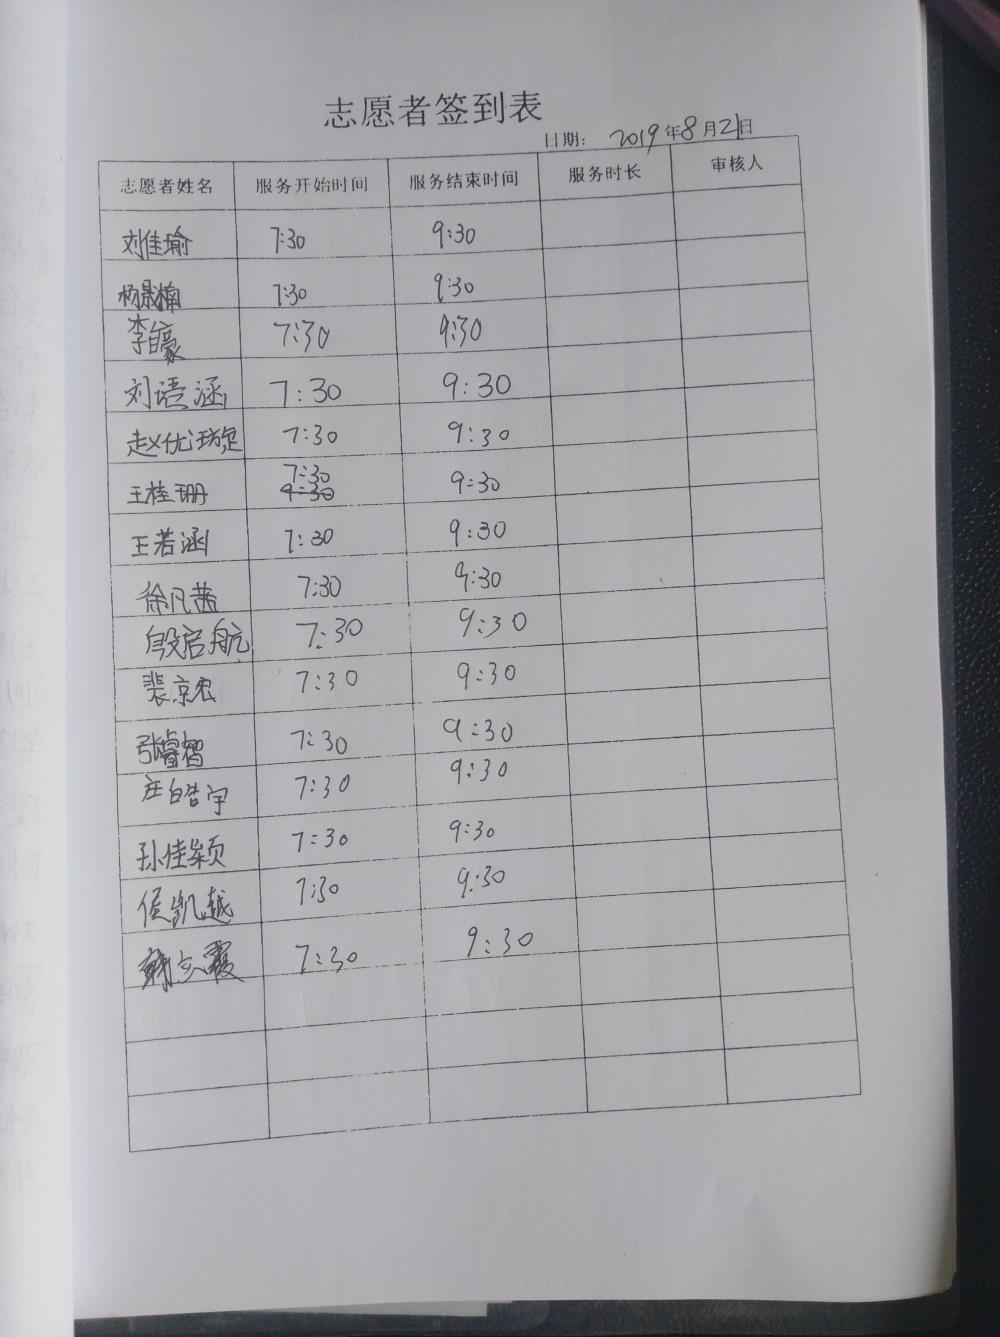 志愿者签到表
日期： 2019年8月21日
志愿者姓名 服务开始时间 服务结束时间 服务时长 审核人
刘佳瑜 7:30 9:30
杨晟楠 7:30 9:30
李自豪 7:30 9:30
刘语涵 7:30 9:30
赵优璇 7:30 9:30
王桂珊 7:30 9:30 9:30
王若涵 7:30 9:30
徐凡茜 7:30 9:30
段启航 7:30 9:30
裴京宏 7:30 9:30
张睿智 7:30 9:30
庄皓宇 7:30 9:30
孙佳颖 7:30 9:30
侯凯越 7:30 9:30
霞 7:30 9:30